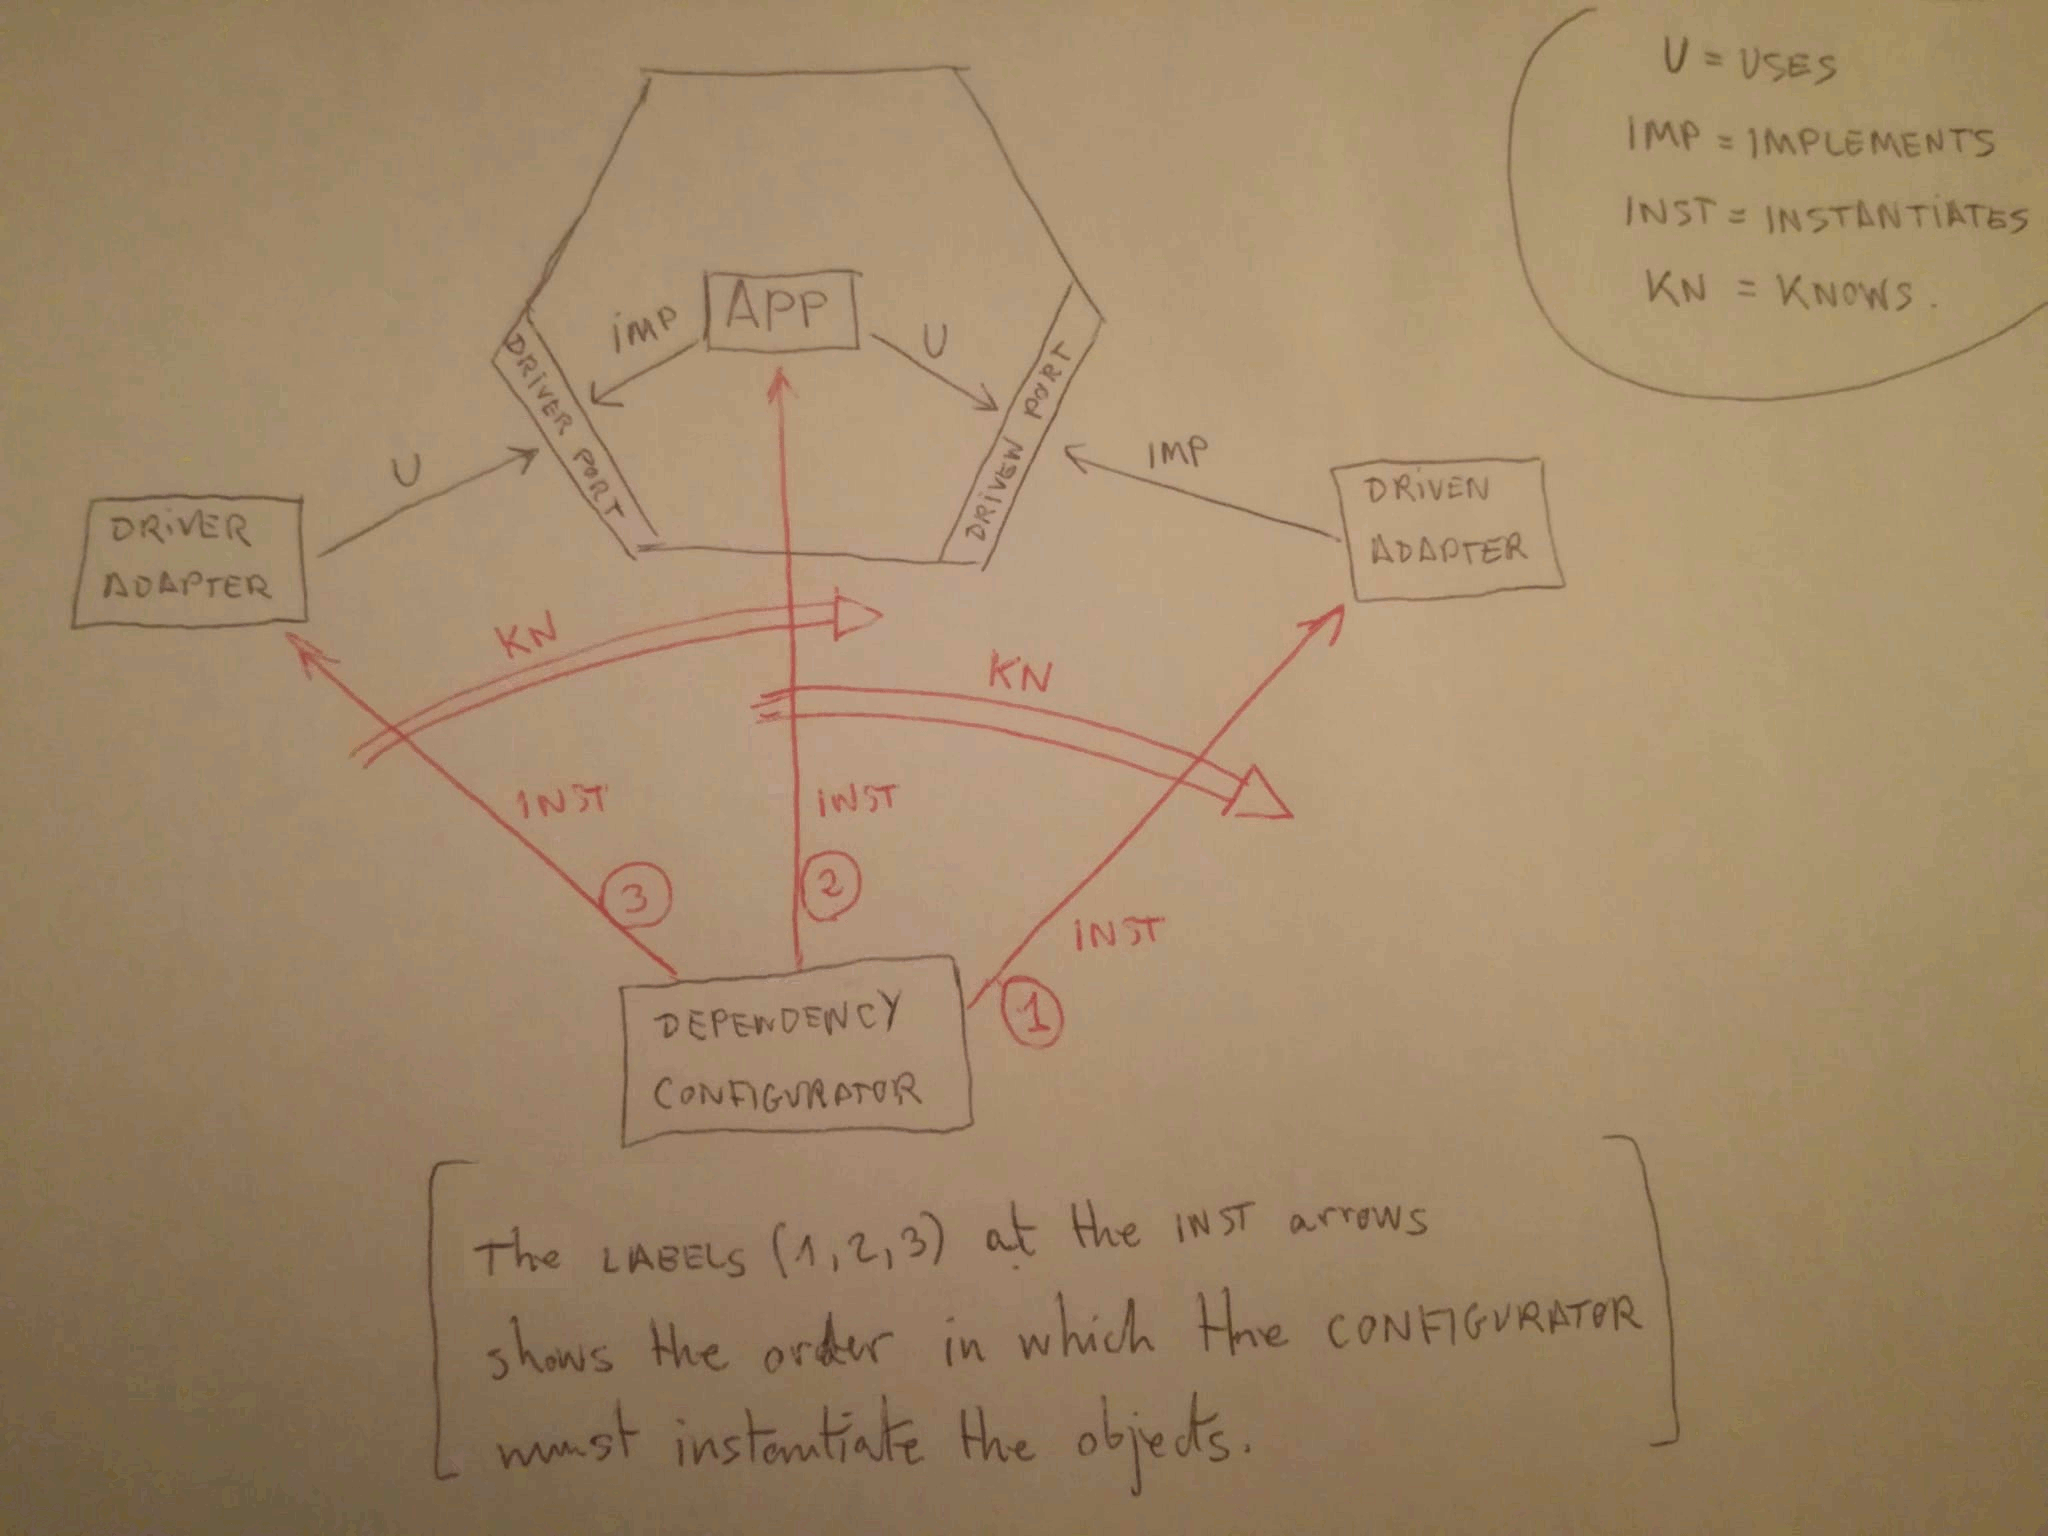 U = USES
IMP = IMPLEMENTS
INST = INSTANTIATES
KN = KNOWS.
APP
IMP
U
DRIVER PORT
DRIVEN PORT
U
IMP
DRIVER
ADAPTER
DRIVEN
ADAPTER
KN
KN
INST
INST
INST
3
2
1
DEPENDENCY
CONFIGURATOR
The LABELS (1,2,3) at the INST arrows
shows the order in which the CONFIGURATOR
must instantiate the objects.